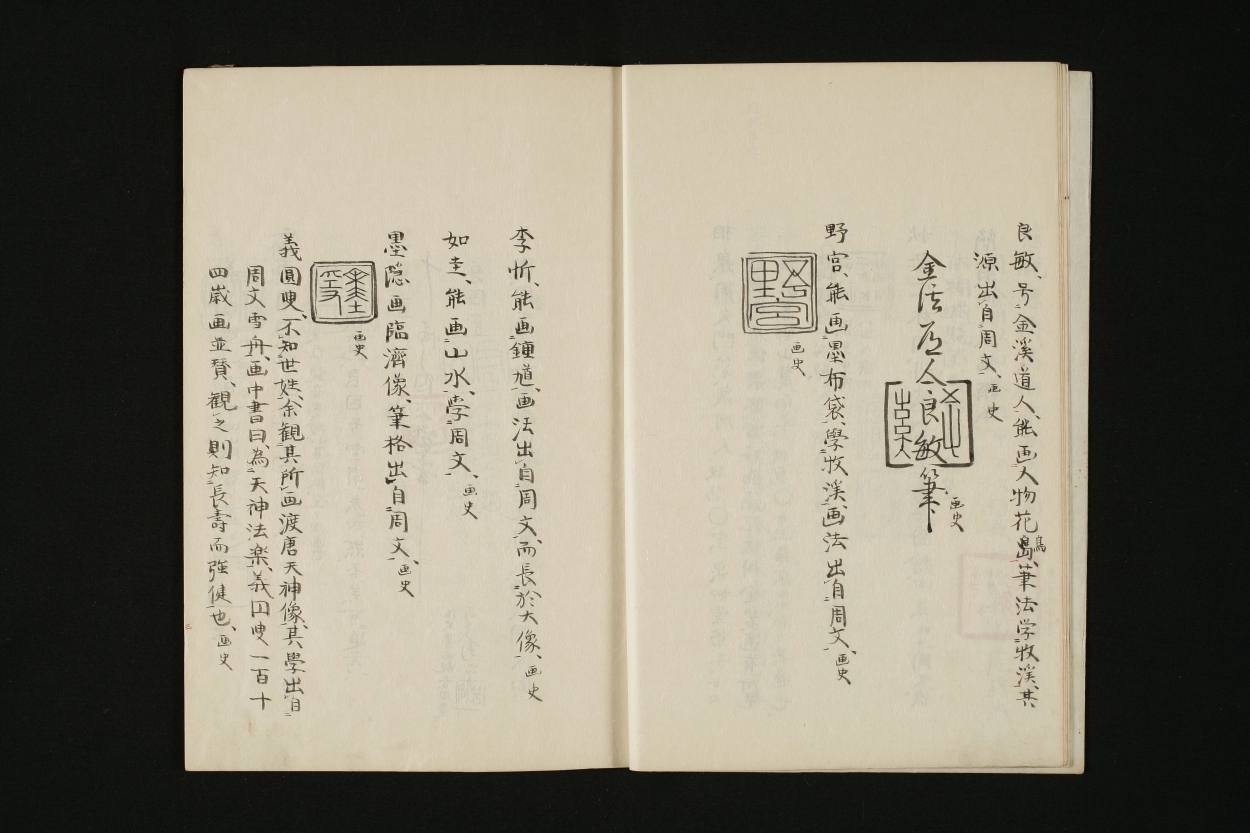 良敏、号金溪道人、能画人物花島、筆法学牧溪、其
鳥
源出自周文、画史
金溪道人良敏筆
画史
野宮、能画墨布袋、學牧溪画法出自周文、画史
野宮
画史
李忻、能画鍾馗、画法出自周文、而長於大像、画史
如圭、能画山水、学周文、画史
墨隠画臨濟像、筆格出自周文、画史
画史
義圓叟、不知世姓、余観其所画渡唐天神像、其學出自
周文雪舟、画中書曰、為天神法楽、義囙叟一百十
四歳画並賛、観之則知長壽而強健也、画史